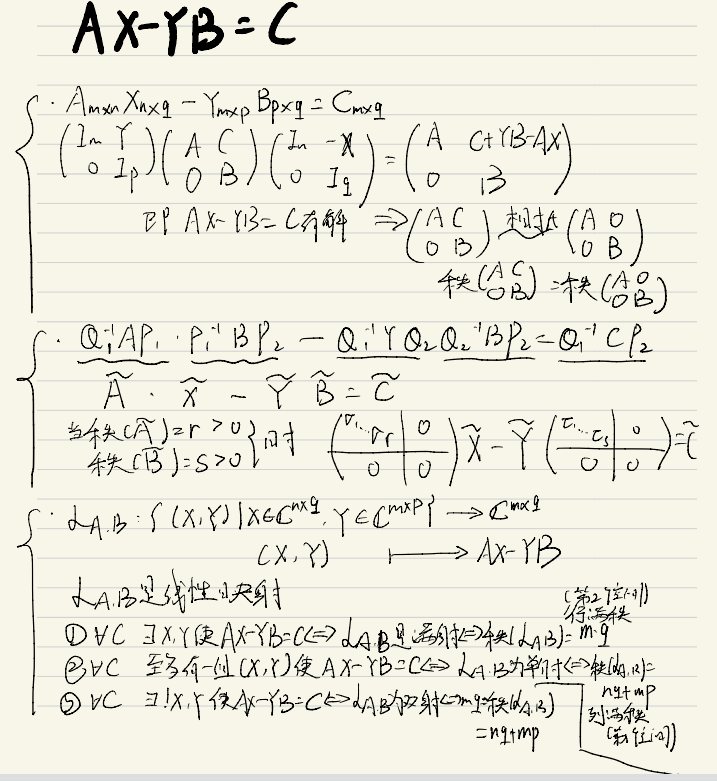 AX-YB=C
· A_{m×n} X_{n×q} - Y_{m×p} B_{p×q} = C_{m×q}
(I_m Y; 0 I_p) (A C; 0 B) (I_n -X; 0 I_q) = (A C+YB-AX; 0 B)
即 AX-YB=C有解 ⇒ (A C; 0 B) 相抵 (A 0; 0 B)
秩(A C; 0 B) = 秩(A 0; 0 B)
· Q_1^{-1}AP_1 · P_1^{-1}BP_2 - Q_1^{-1}YQ_2 Q_2^{-1}BP_2 = Q_1^{-1}CP_2
Ã · X̃ - Ỹ B̃ = C̃
当秩(Ã)=r>0
秩(B̃)=s>0 } 时 (σ_1...σ_r 0; 0 0) X̃ - Ỹ (τ_1...τ_s 0; 0 0) = C̃
· 𝓛_{A,B}: {(X,Y)|X∈ℂ^{n×q}, Y∈ℂ^{m×p}} → ℂ^{m×q}
(X,Y) ↦ AX-YB
𝓛_{A,B}是线性映射
(第2空间)
行满秩
①∀C ∃X,Y使AX-YB=C⇔𝓛_{A,B}是满射⇔秩(𝓛_{A,B})=m·q
②∀C 至多有一组(X,Y)使AX-YB=C⇔𝓛_{A,B}为单射⇔秩(𝓛_{A,B})=
nq+mp
③∀C ∃!X,Y使AX-YB=C⇔𝓛_{A,B}为双射⇔mq=秩(𝓛_{A,B})
=nq+mp
列满秩
(第1空间)